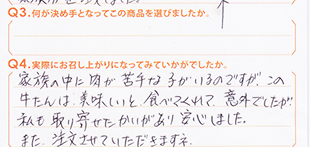 Q3.何が決め手となってこの商品を選びましたか。
Q4.実際にお召し上がりになってみていかがでしたか。
家族の中に肉が苦手な子がいるのですが、この
牛たんは、美味しいと食べてくれて、意外でしたが
私も取り寄せたかいがあり安心しました。
また、注文させていただきますネ